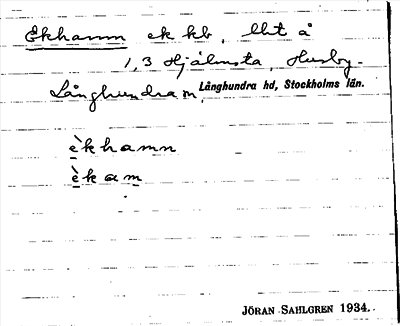 Ekhamn ek hb, llit å
1,3 Hjälmsta, Husby-
Långhundra sn, Långhundra hd, Stockholms län.
èkhamn
èkam
JÖRAN SAHLGREN 1934.